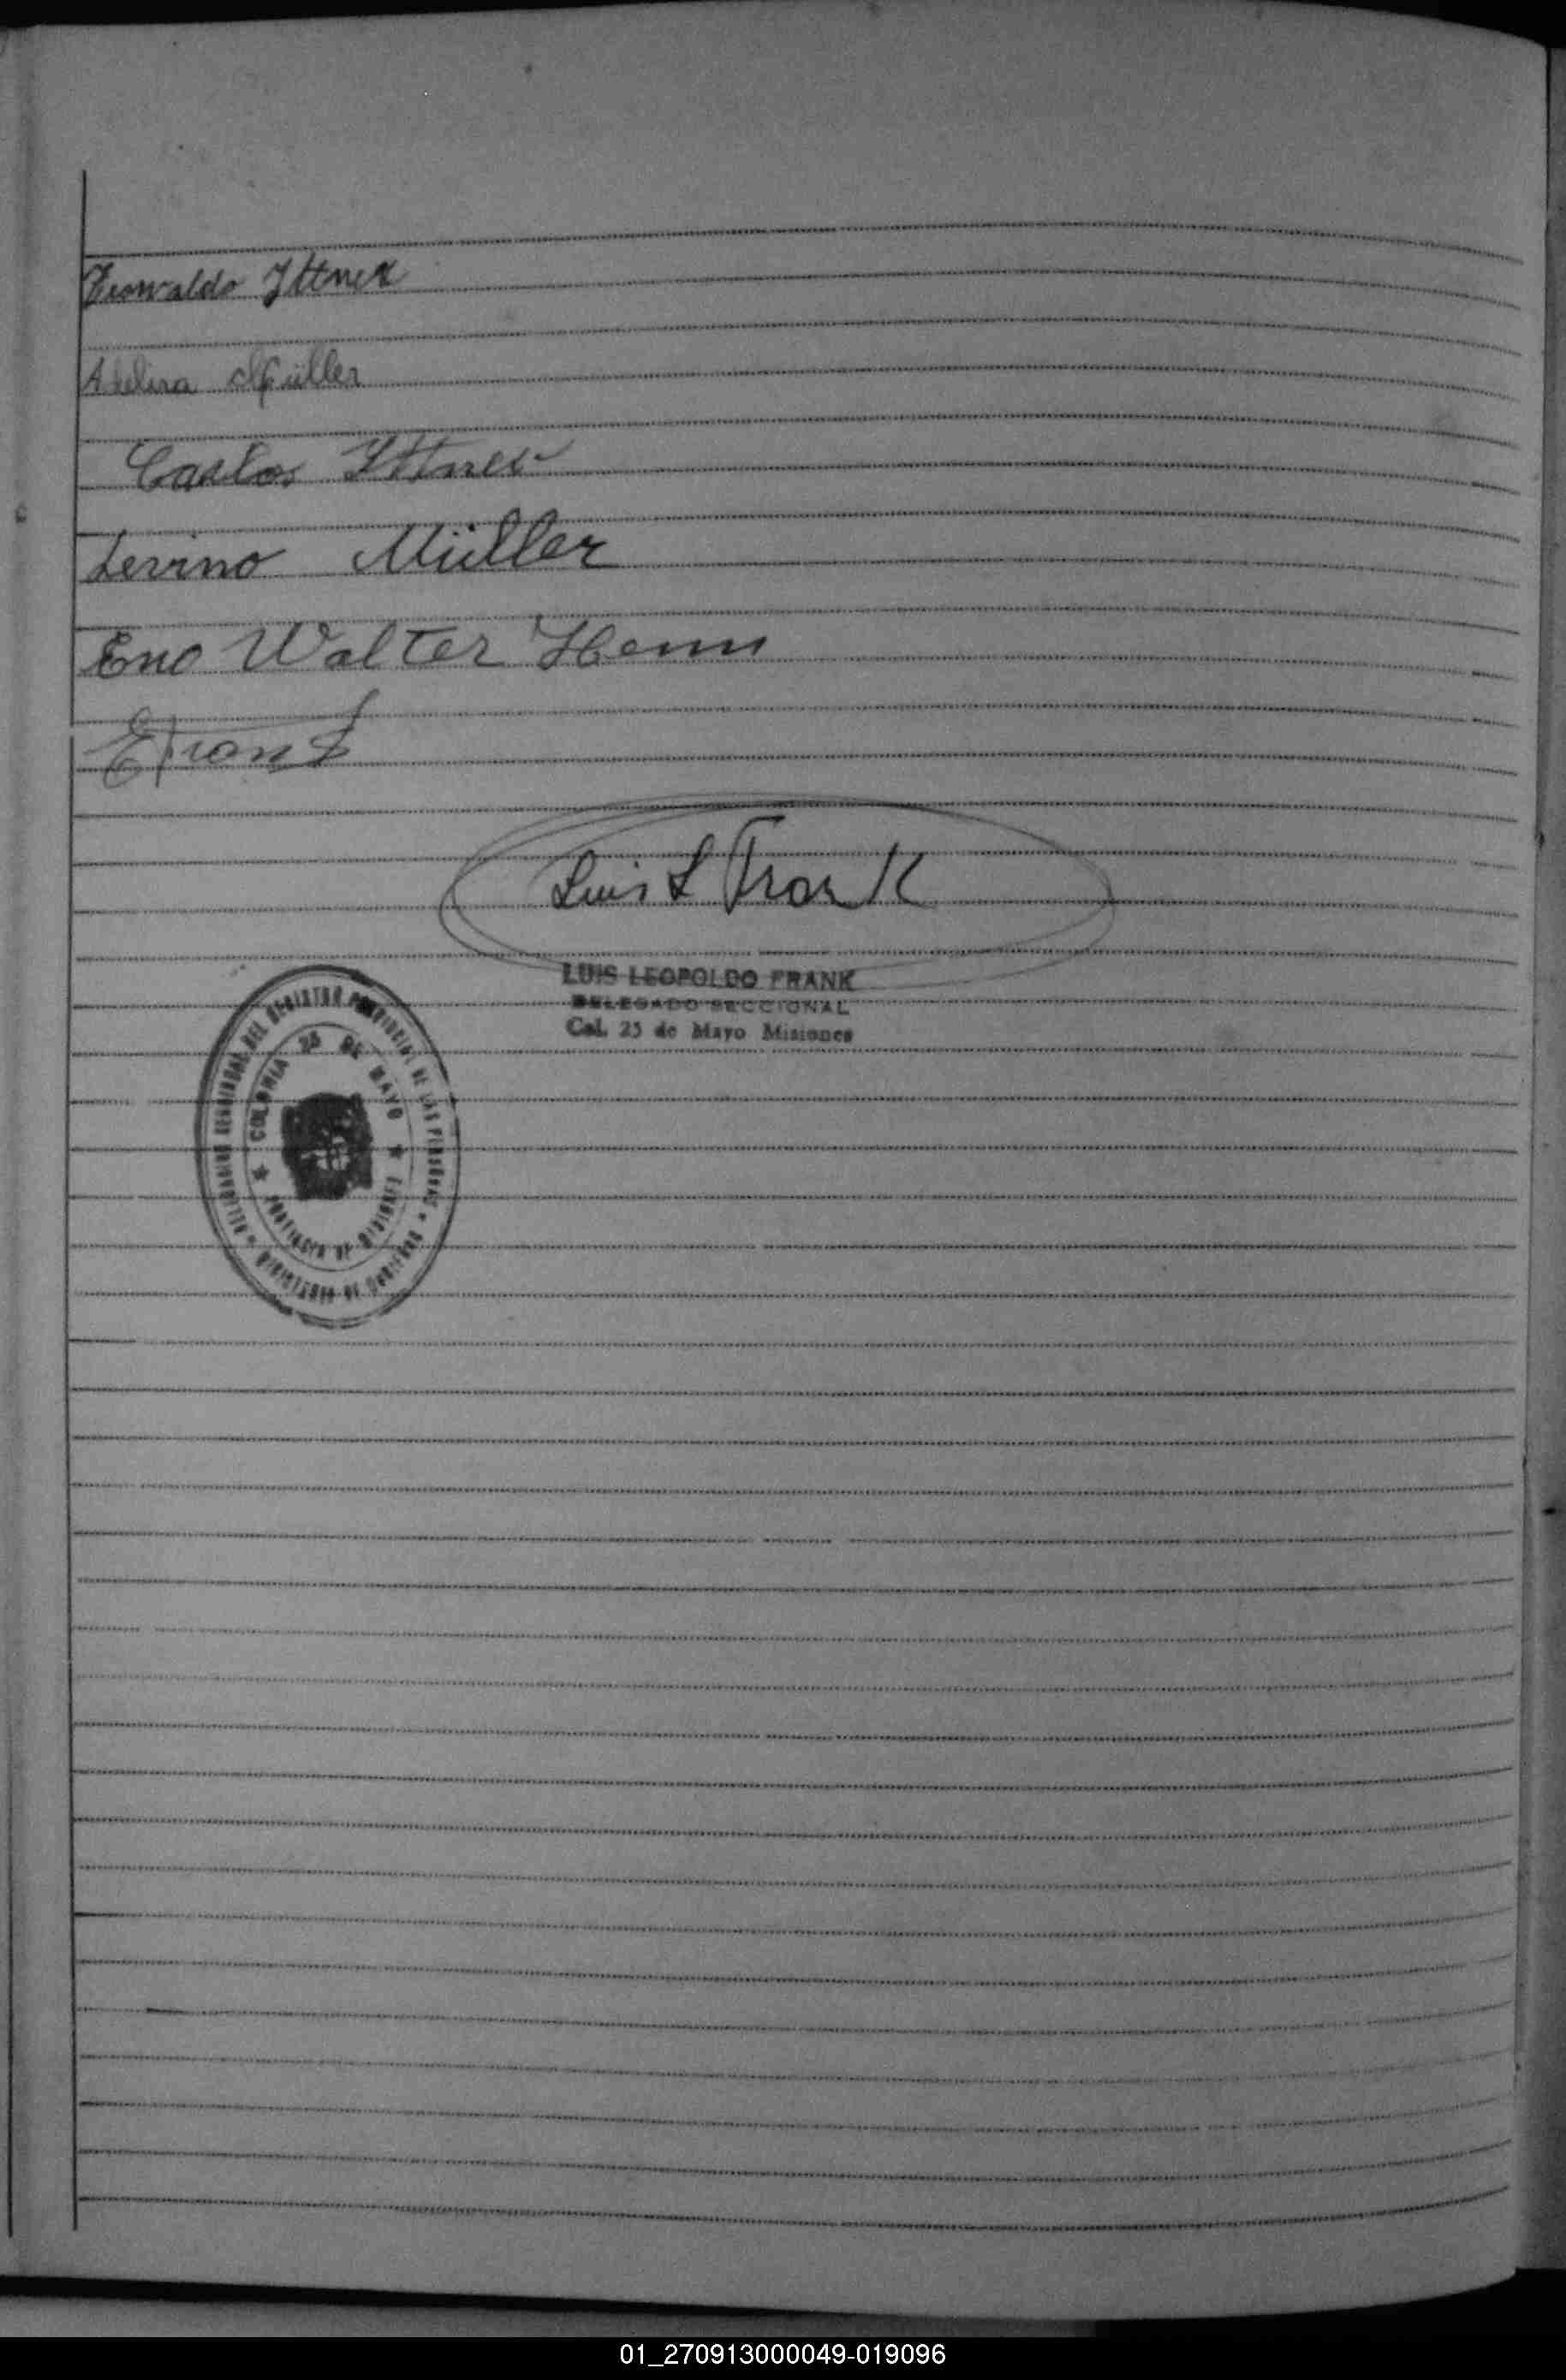 Ittner
Adelina Müller
Carlos Ittner
Levino Müller
Eno Walter Henn
EFrank
Luis L Frank
LUIS LEOPOLDO FRANK
DELEGADO SECCIONAL
Col. 25 de Mayo Misiones
DELEGACION SECCIONAL DEL REGISTRO PROVINCIAL DE LAS PERSONAS * MINISTERIO DE GOBIERNO *
COLONIA 25 DE MAYO
* PROVINCIA DE MISIONES *
01_270913000049-019096